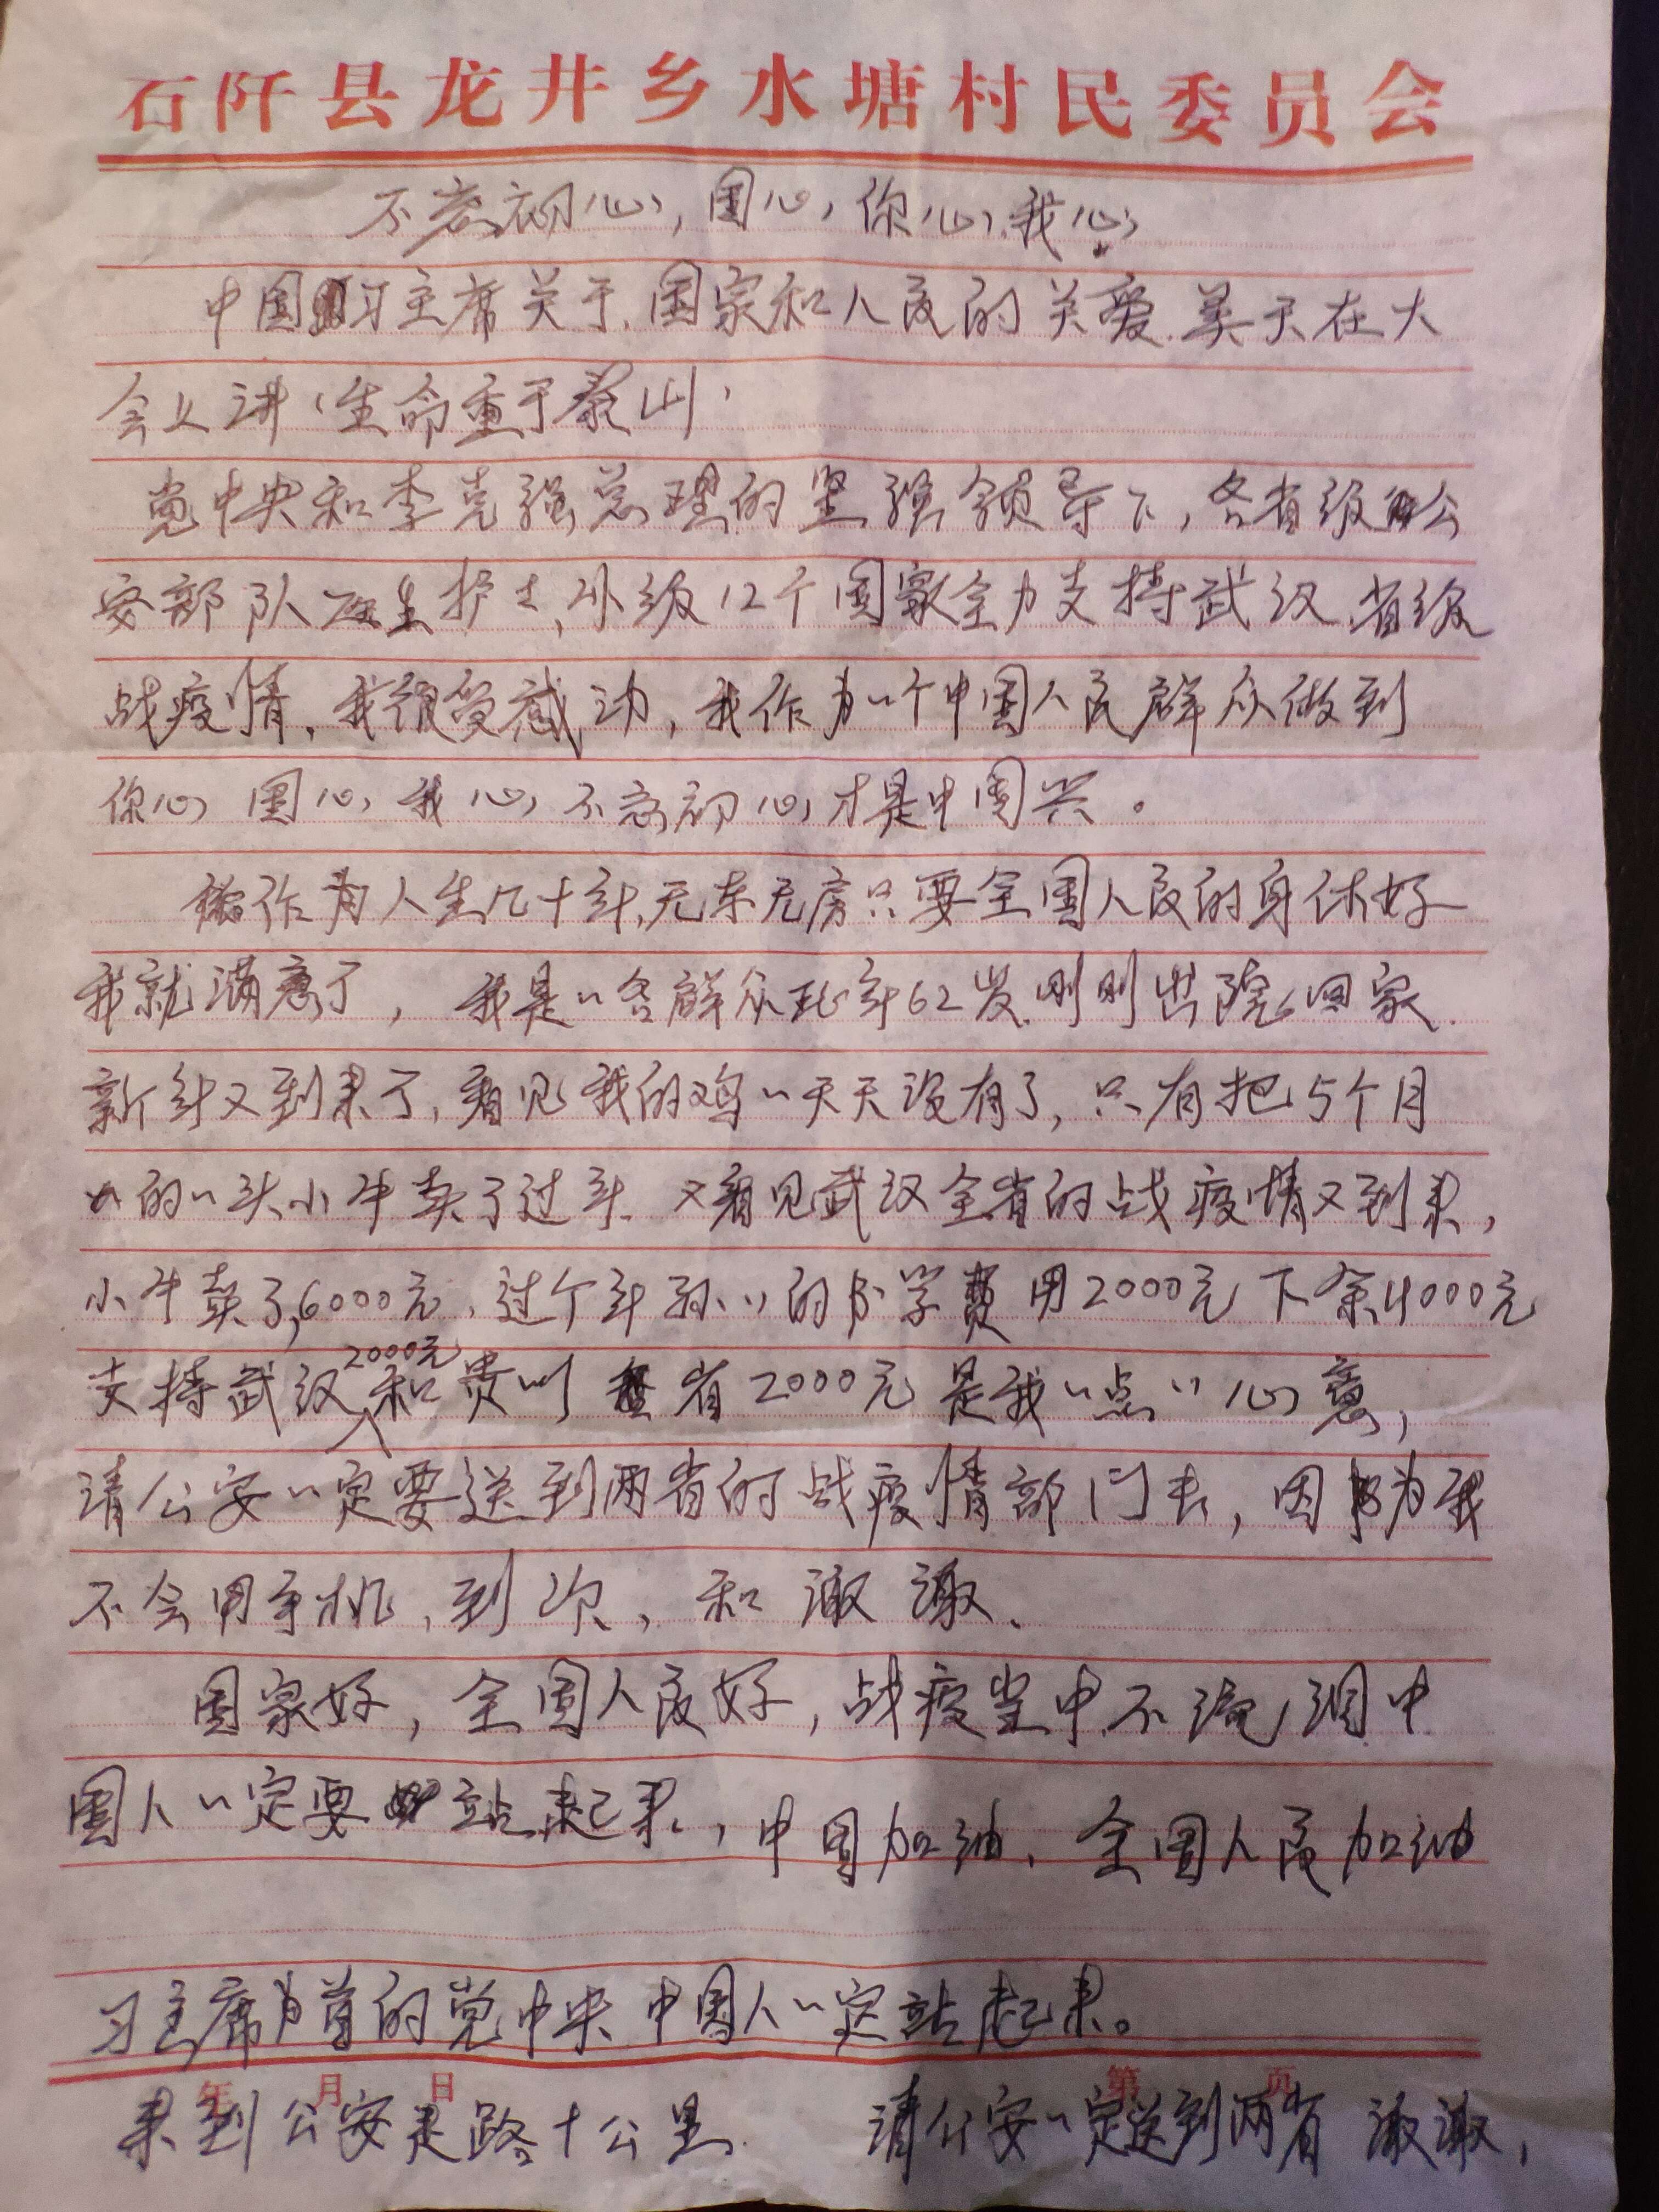 石阡县龙井乡水塘村民委员会
不忘初心,国心,你心,我心
中国习主席关于国家和人民的关爱.关于在大
会上讲“生命重于泰山”
党中央和李克强总理的坚强领导下,各省级公
安部队医生护士,外级12个国家全力支持武汉.省级
战疫情,我很受感动,我作为一个中国人民群众做到
你心 国心,我心,不忘初心,才是中国兴。
作为人生几十年,无车无房只要全国人民的身体好
我就满意了,我是一名群众现年62岁.刚刚出院回家.
新年又到来了,看见我的鸡一天天没有了,只有把5个月
的一头小牛卖了过年.又看见武汉全省的战疫情又到来,
小牛卖了,6000元.过个年孙儿的书学费用2000元下余4000元
支持武汉2000元和贵州省2000元是我一点点心意,
请公安一定要送到两省的战疫情部门去,因为我
不会用手机,到次,和谢谢.
国家好,全国人民好,战疫当中.不流泪中
国人一定要站起来,中国加油.全国人民加油
习主席为首的党中央中国人一定站起来。
年 月 日 第 页
来到公安走路十公里. 请公安一定送到两省 谢谢,